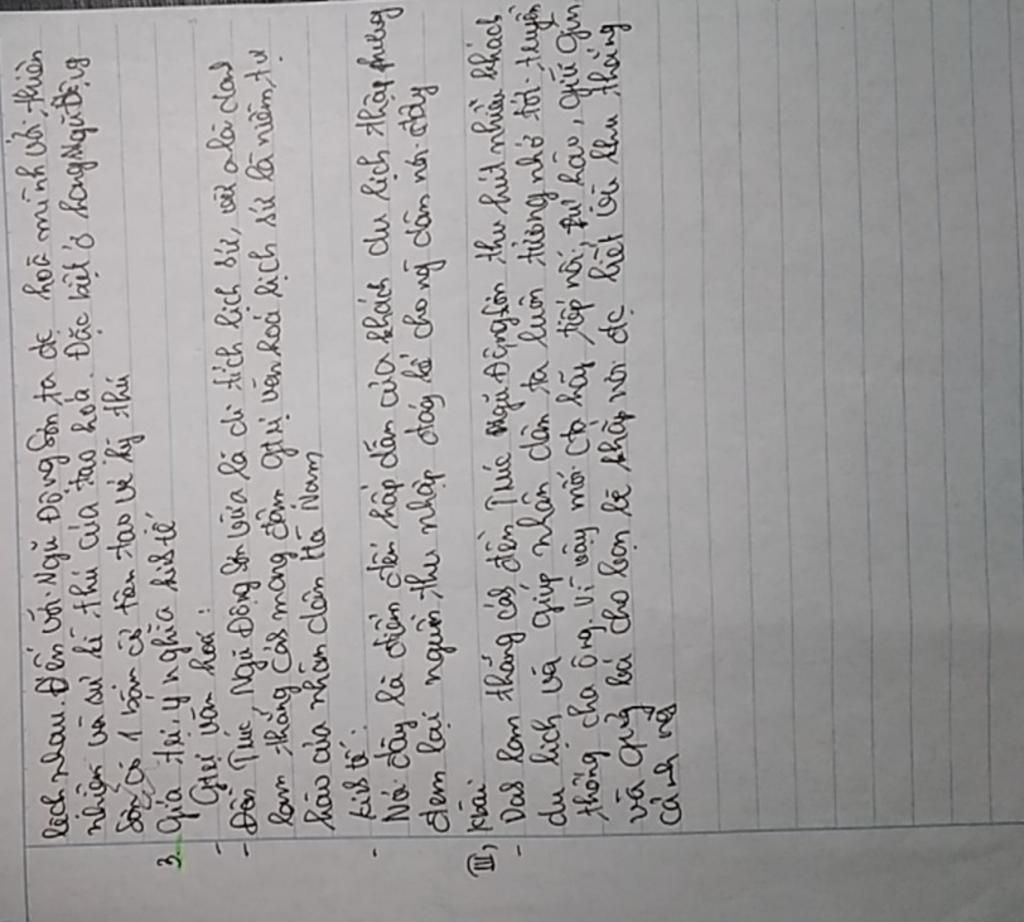 lệch nhau. Đến với Ngũ Động Sơn ta đc hoà mình với thiên
nhiên và sự kì thú của tạo hoá. Đặc biệt ở hang Ngũ Động
Sơn có 1 bàn cờ tân tạo vẻ kỳ thú
3. Giá trị, ý nghĩa kinh tế
- Gtrị văn hoá:
- Đền Trúc, Ngũ Động Sơn vừa là di tích lịch sử, vừa là danh
lam thắng cảnh mang đậm gtrị văn hoá lịch sử là niềm tự
hào của nhân dân Hà Nam
- kinh tế:
Nơi đây là điểm đến hấp dẫn của khách du lịch thập phương
đem lại nguồn thu nhập đáng kể cho ng dân nơi đây
III, Kbài
- Danh lam thắng cảnh đền Trúc Ngũ Động Sơn thu hút nhiều khách
du lịch và giúp nhân dân ta luôn tưởng nhớ tới truyền
thống cha ông. Vì vậy mỗi cta hãy tiếp nối, tự hào, giữ gìn
và quảng bá cho bạn bè khắp nơi đc biết về thu thắng
cảnh này